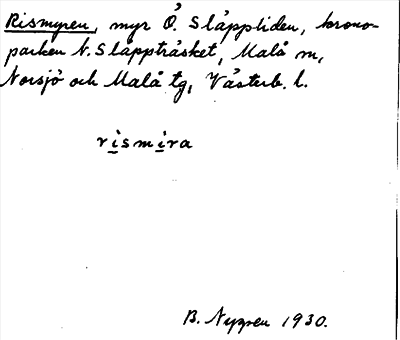 Rismyren, myr Ö. Släpptiden, krono-
parken N. Släppträsket, Malå sn,
Norsjö och Malå tg, Västerb. l.
rismira
B. Nygren 1930.